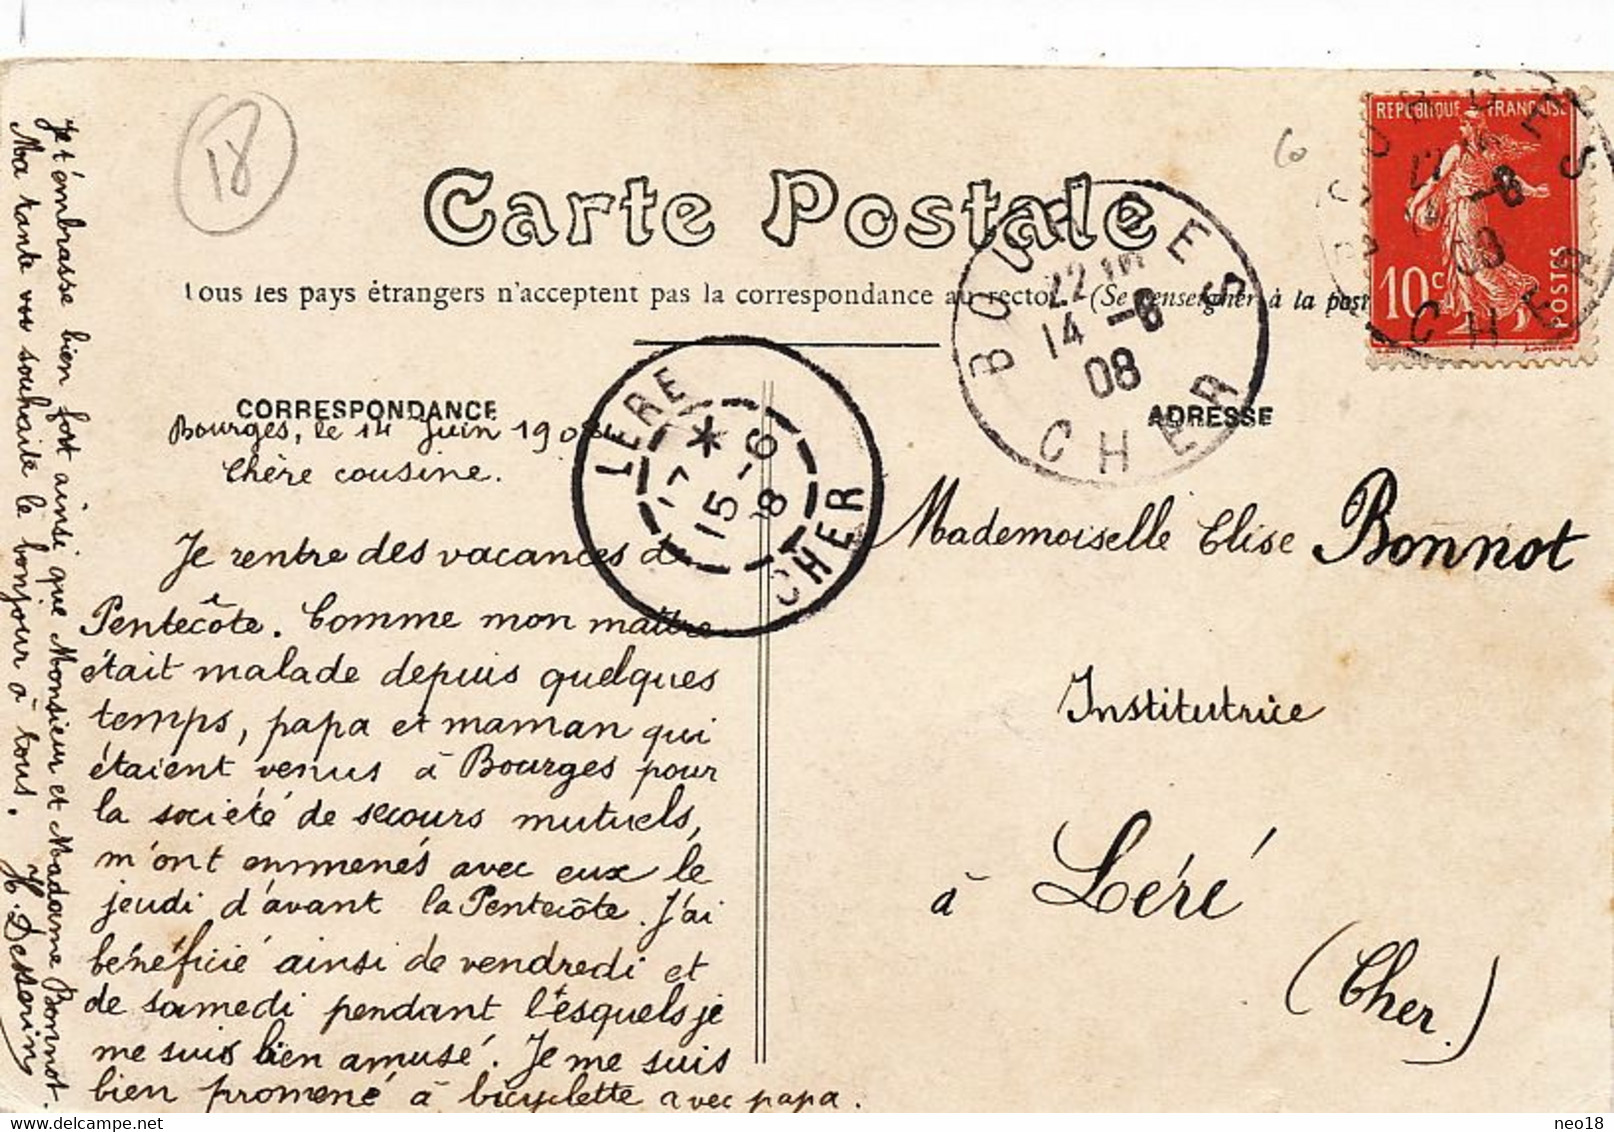 18
Carte Postale
Tous les pays étrangers n'acceptent pas la correspondance au recto. (Se renseigner à la post
CORRESPONDANCE
ADRESSE
REPUBLIQUE FRANÇAISE
10c
POSTES
BOURGES
22
14 -6
08
CHER
BOURGES
-6
08
CHER
LERE
17 *
15 -6
08
CHER
Bourges, le 14 Juin 1908
Chère cousine.
Je rentre des vacances de
Pentecôte. Comme mon maître
était malade depuis quelques
temps, papa et maman qui
étaient venus à Bourges pour
la société de secours mutuels,
m'ont emmenés avec eux le
jeudi d'avant la Pentecôte. J'ai
bénéficié ainsi de vendredi et
de samedi pendant lesquels je
me suis bien amusé. Je me suis
bien promené à bicyclette avec papa.
Je t'embrasse bien fort ainsi que Monsieur et Madame Bonnot.
Ma tante vous souhaite le bonjour à tous.
Mademoiselle Elise Bonnot
Institutrice
à Léré
(Cher)
delcampe.net
neo18